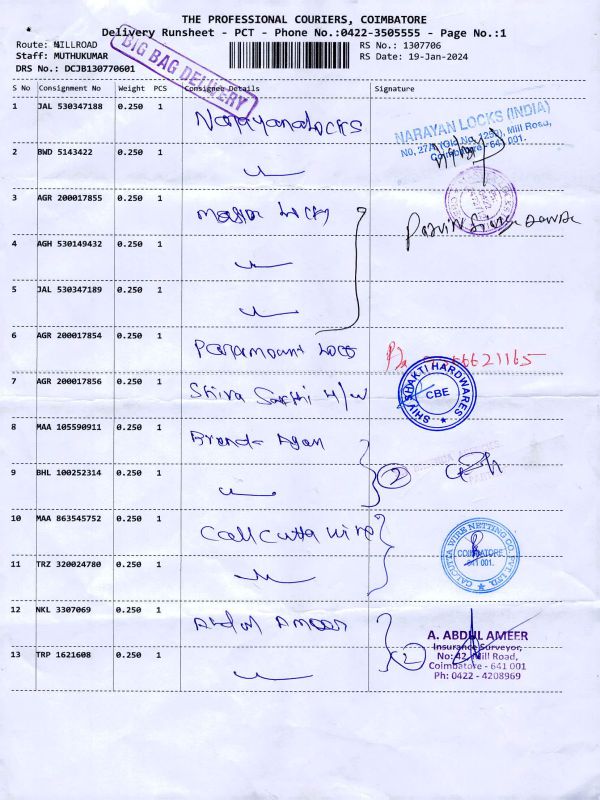 THE PROFESSIONAL COURIERS, COIMBATORE
* Delivery Runsheet - PCT - Phone No.:0422-3505555 - Page No.:1
Route: MILLROAD RS No.: 1307706
Staff: MUTHUKUMAR RS Date: 19-Jan-2024
DRS No.: DCJB130770601
BIG BAG DELIVERY
S No Consignment No Weight PCS Consignee Details Signature
1 JAL 530347188 0.250 1 Narayana Locks
NARAYAN LOCKS (INDIA)
No, 27A, (Old No, 125B), Mill Road,
Coimbatore - 641 001.
2 BWD 5143422 0.250 1
3 AGR 200017855 0.250 1
4 AGH 530149432 0.250 1
5 JAL 530347189 0.250 1
6 AGR 200017854 0.250 1 Paramount Locks
7 AGR 200017856 0.250 1 Shiva Sakthi H/W
SHIV SHAKTI HARDWARES
CBE
8 MAA 105590911 0.250 1
9 BHL 100252314 0.250 1 2
10 MAA 863545752 0.250 1 Calcutta wire
CALCUTTA WIRE NETTING CO. PVT. LTD.
COIMBATORE
641 001.
11 TRZ 320024780 0.250 1
12 NKL 3307069 0.250 1 Abdul Ameer
A. ABDUL AMEER
Insurance Surveyor,
No: 42, Mill Road,
Coimbatore - 641 001
Ph: 0422 - 4208969
13 TRP 1621608 0.250 1 2